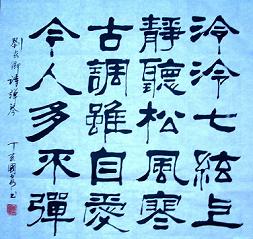 泠泠七絃上
靜聽松風寒
古調雖自愛
今人多不彈
劉長卿詩彈琴
丁亥國